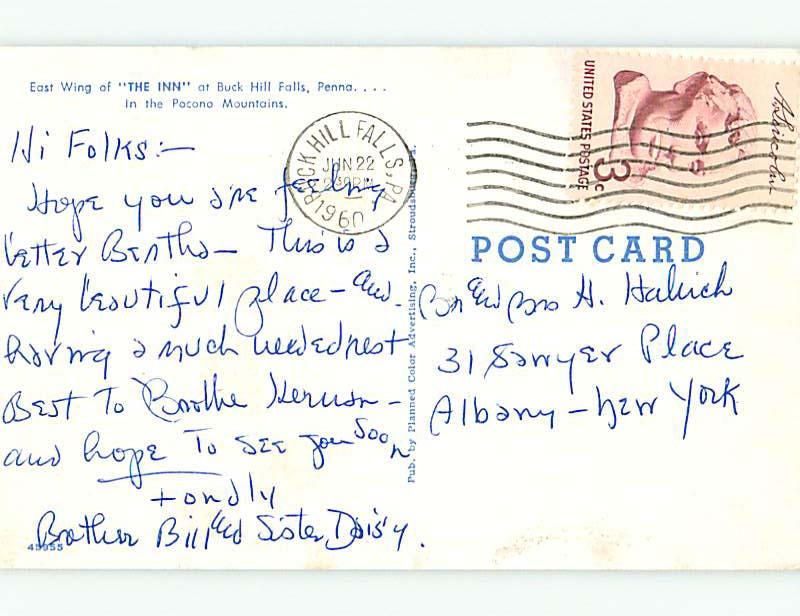 East Wing of "THE INN" at Buck Hill Falls, Penna. . . .
In the Pocono Mountains.
Hi Folks:—
Hope you are feeling
better Bertha— This is a
very beautiful place— and
having a much needed rest
Best To Brother Herman —
and hope To see you soon
Fondly
Brother Bill and Sister Daisy.
45955
Pub. by Planned Color Advertising, Inc., Stroudsburg, Pa.
BUCK HILL FALLS, PA.
JUN 22
230PM
1960
UNITED STATES POSTAGE
3c
A. Lincoln
POST CARD
and H.
31 Sawyer Place
Albany — New York